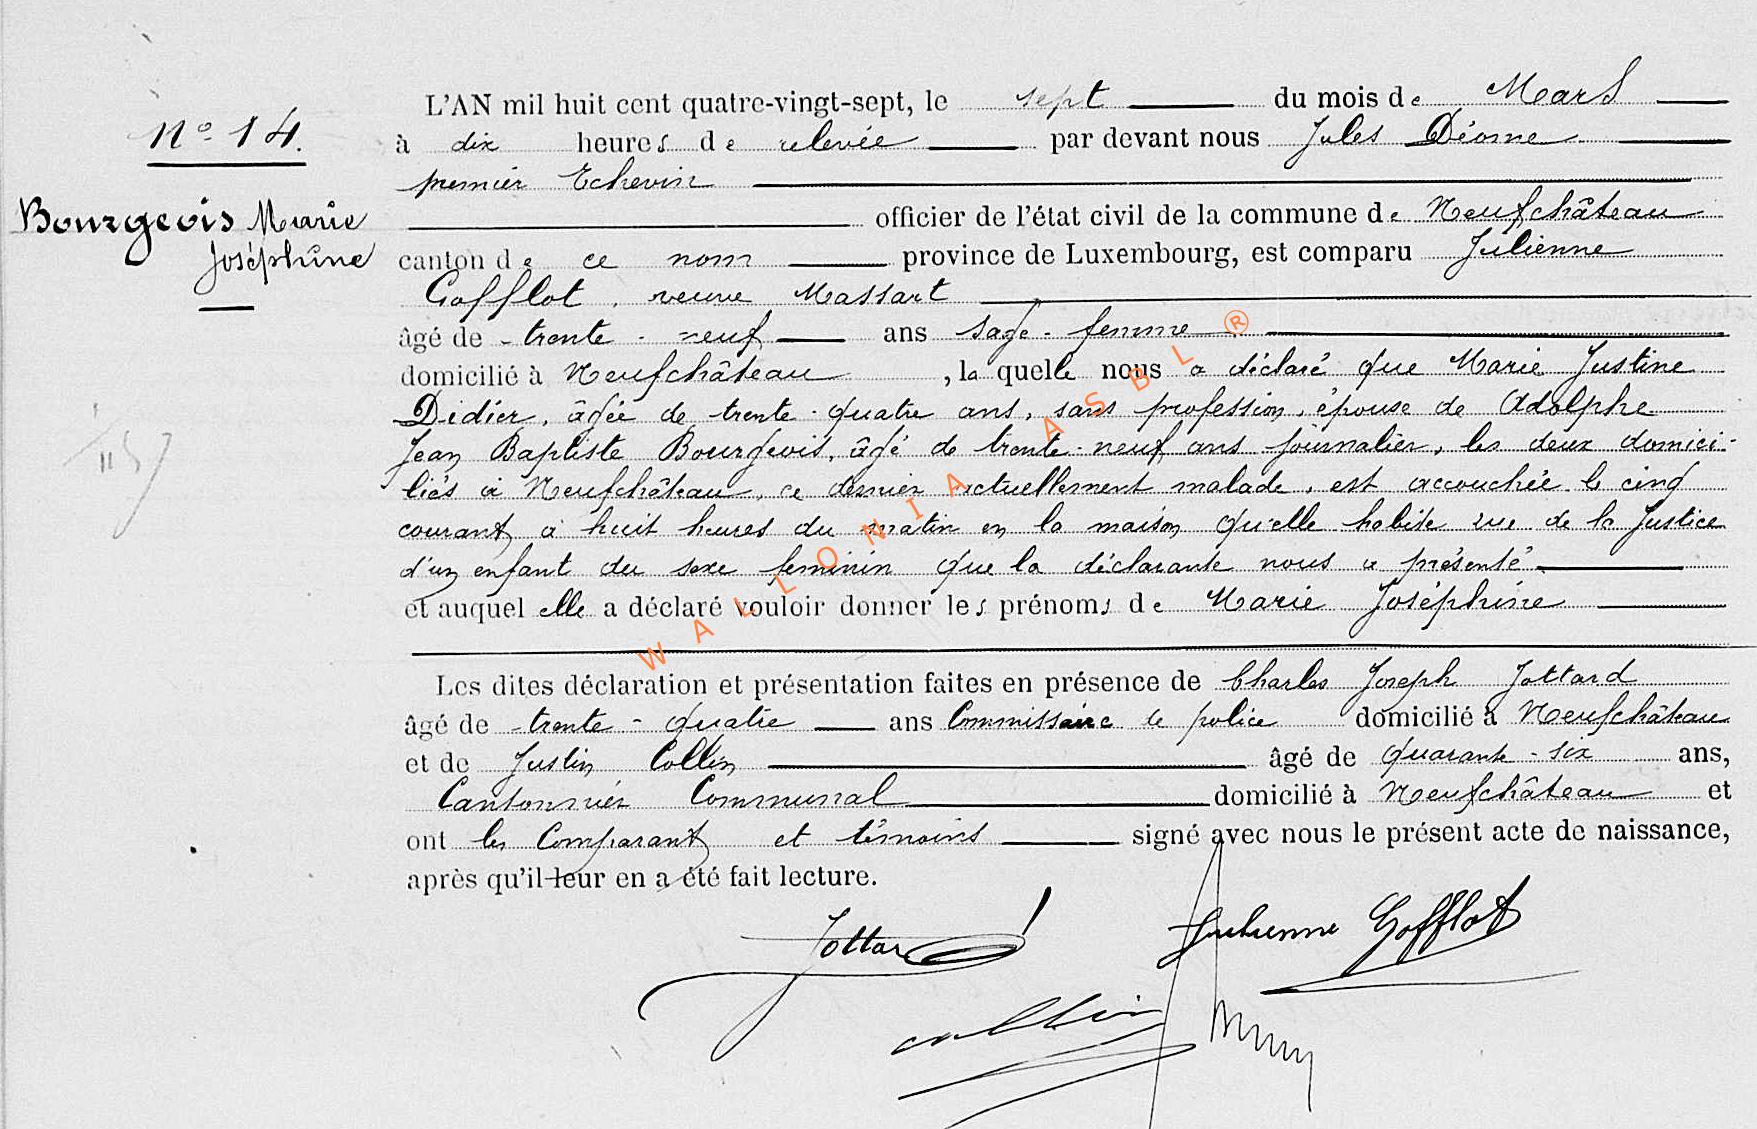 N° 14.
Bourgeois Marie
Joséphine
L'AN mil huit cent quatre-vingt-sept, le sept du mois de Mars
à dix heures de relevée par devant nous Jules Déome
premier Echevin
officier de l'état civil de la commune de Neufchâteau
canton de ce nom province de Luxembourg, est comparu Julienne
Gofflot, veuve Massart
âgé de trente-neuf ans sage-femme
domicilié à Neufchâteau, la quelle nous a déclaré que Marie Justine
Didier, âgée de trente-quatre ans, sans profession, épouse de Adolphe
Jean Baptiste Bourgeois, âgé de trente-neuf ans journalier, les deux domici-
liés à Neufchâteau, ce dernier actuellement malade, est accouchée le cinq
courant à huit heures du matin en la maison qu'elle habite rue de la Justice
d'un enfant du sexe feminin que la déclarante nous a présenté
et auquel elle a déclaré vouloir donner les prénoms de Marie Joséphine
Les dites déclaration et présentation faites en présence de Charles Joseph Jottard
âgé de trente-quatre ans Commissaire de police domicilié à Neufchâteau
et de Justin Collin âgé de quarante-six ans,
Cantonnier Communal domicilié à Neufchâteau et
ont les Comparant et témoins signé avec nous le présent acte de naissance,
après qu'il leur en a été fait lecture.
Jottard Julienne Gofflot
Collin
WALLONIA ASBL ®